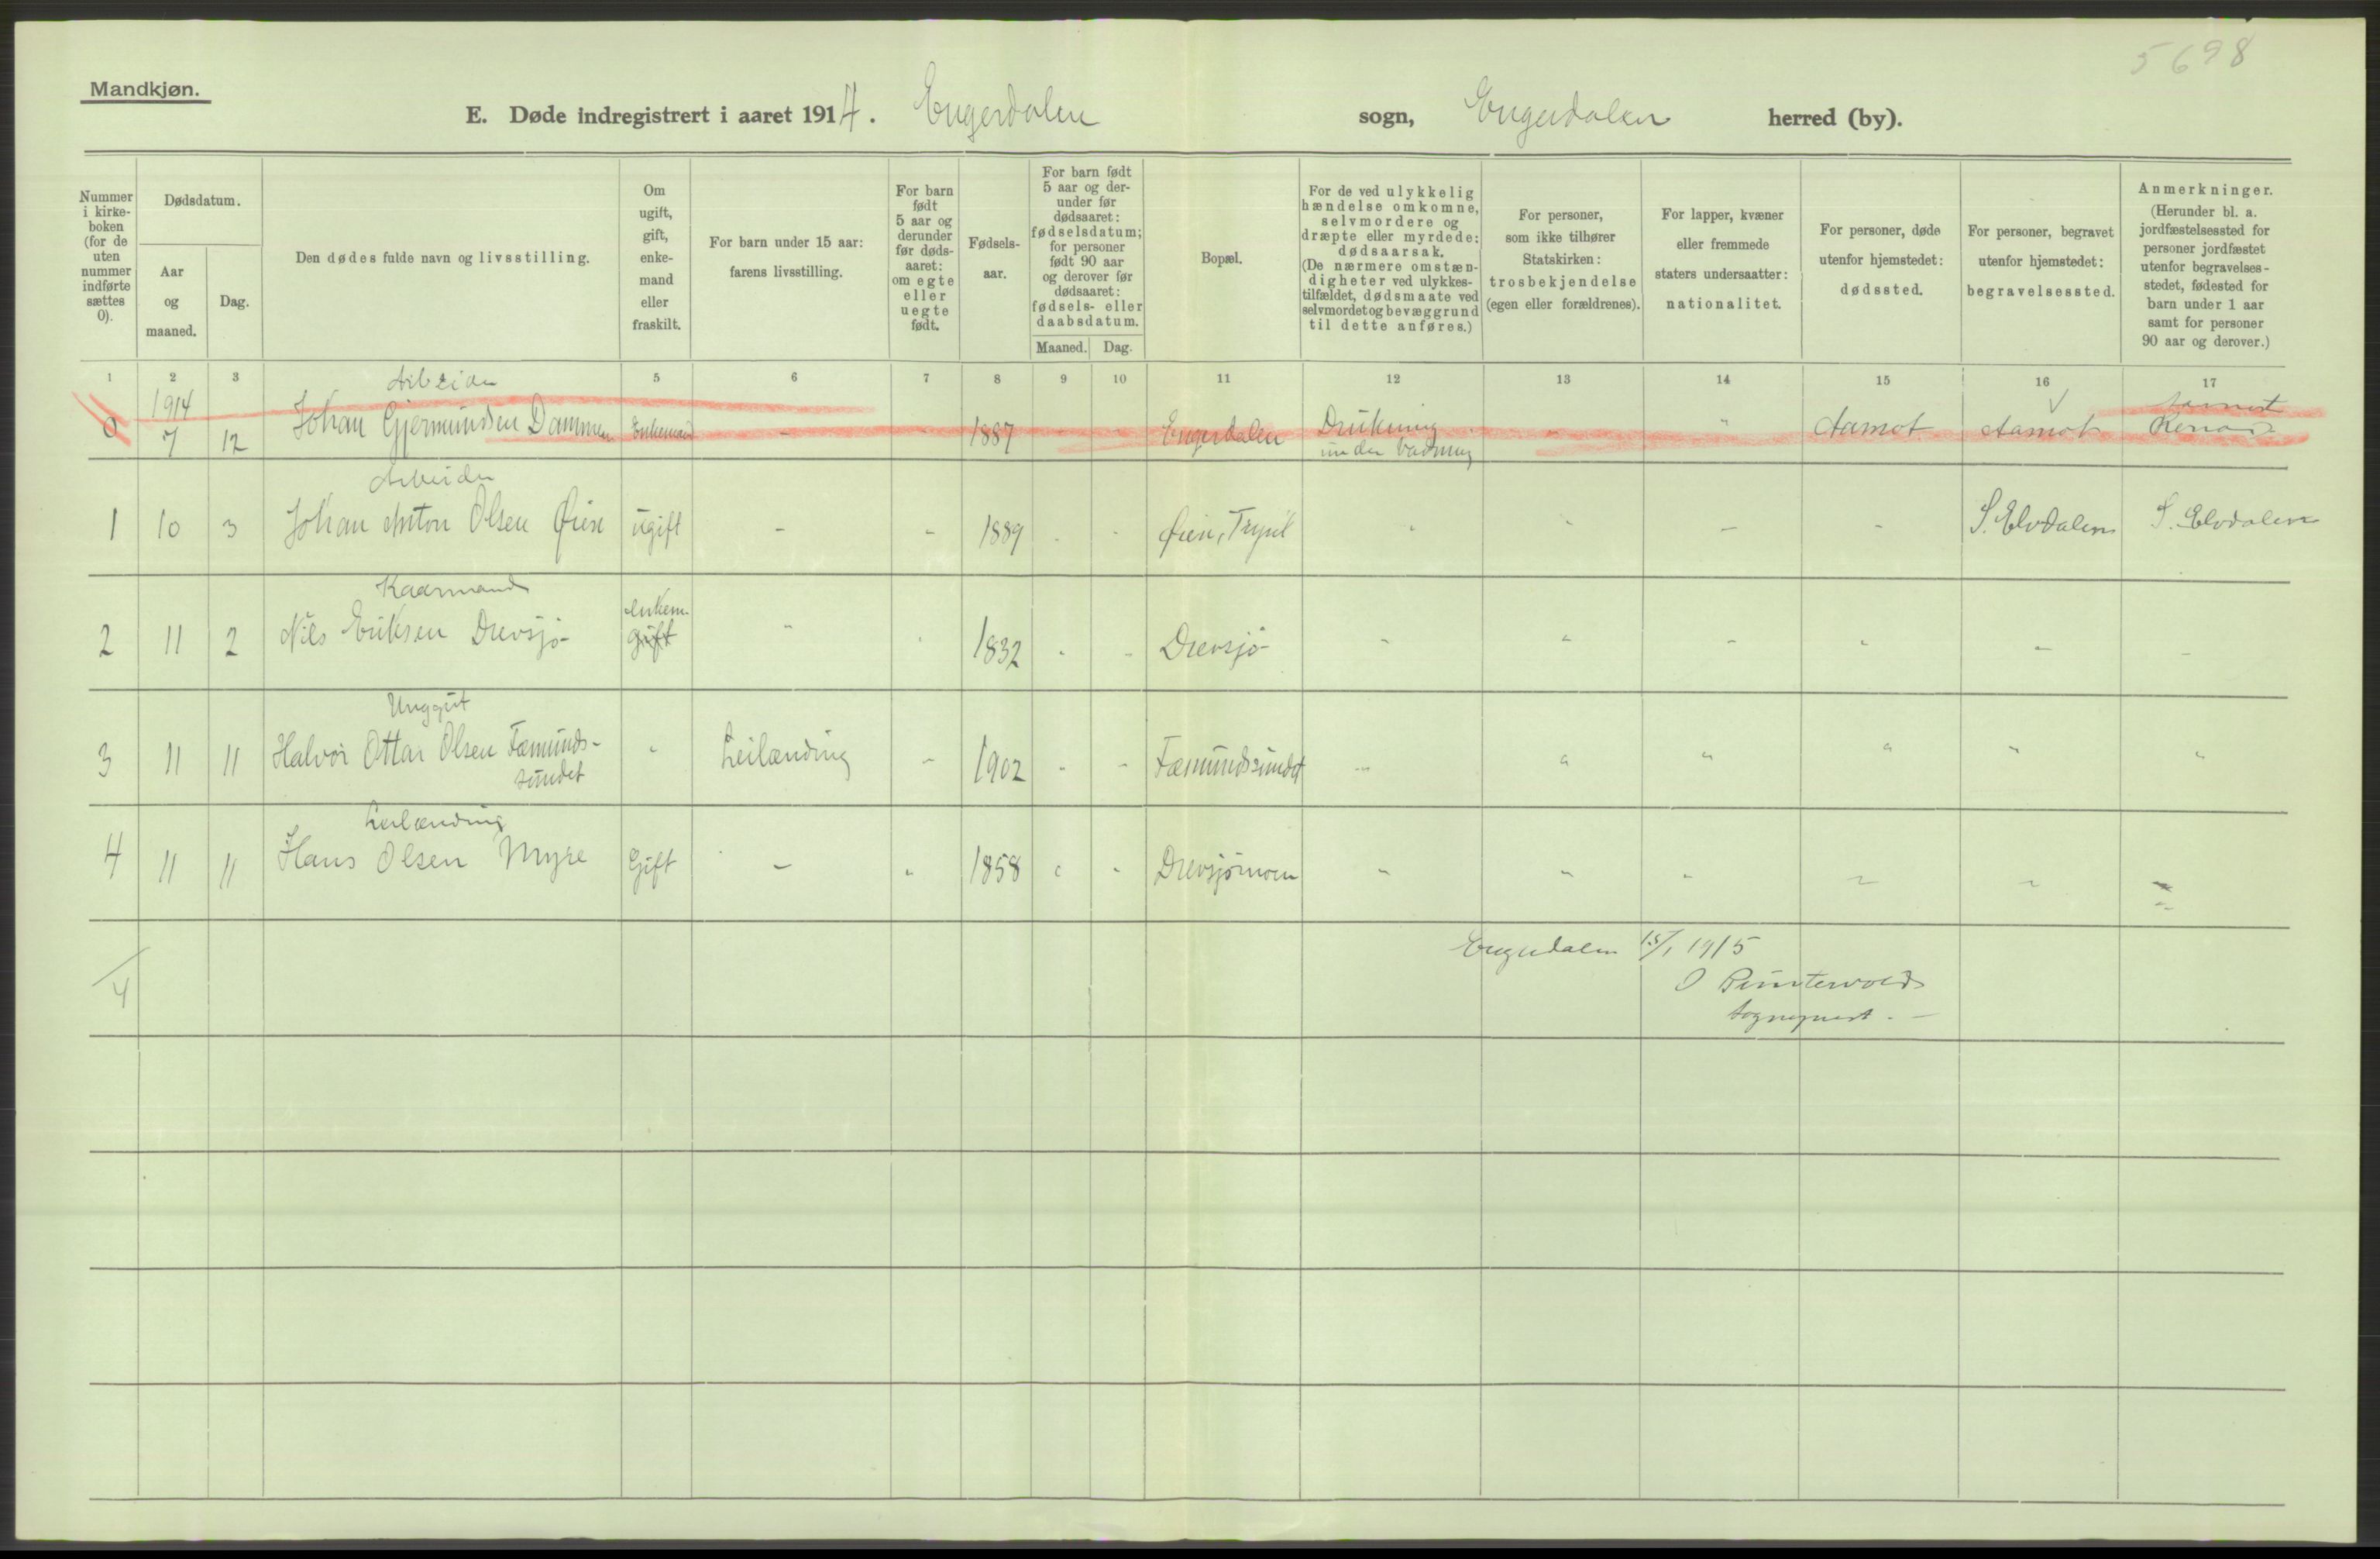 5698
Mandkjøn.
E. Døde indregistrert i aaret 1914. Engerdalen sogn, Engerdalen herred (by).
Nummer i kirke-boken (for de uten nummer indførte sættes 0).
Dødsdatum.
Aar og maaned.
Dag.
Den dødes fulde navn og livsstilling.
Om ugift, gift, enke-mand eller fraskilt.
For barn under 15 aar: farens livsstilling.
For barn født 5 aar og derunder før døds-aaret: om egte eller uegte født.
Fødsels-aar.
For barn født 5 aar og der-under før dødsaaret: fødselsdatum; for personer født 90 aar og derover før dødsaaret: fødsels- eller daabsdatum.
Maaned. Dag.
Bopæl.
For de ved ulykkelig hændelse omkomne, selvmordere og dræpte eller myrdede: dødsaarsak. (De nærmere omstæn-digheter ved ulykkes-tilfældet, dødsmaate ved selvmordet og bevæggrund til dette anføres.)
For personer, som ikke tilhører Statskirken: trosbekjendelse (egen eller forældrenes).
For lapper, kvæner eller fremmede staters undersaatter: nationalitet.
For personer, døde utenfor hjemstedet: dødssted.
For personer, begravet utenfor hjemstedet: begravelsessted.
Anmerkninger. (Herunder bl. a. jordfæstelsessted for personer jordfæstet utenfor begravelses-stedet, fødested for barn under 1 aar samt for personer 90 aar og derover.)
1 2 3 5 6 7 8 9 10 11 12 13 14 15 16 17
1914 Arbeider
0 7 12 Johan Gjermundsen Dammen Enkemand - - 1887 - - Engerdalen Drukning - " Aamot Aamot
under vadning
Arbeider
1 10 3 Johan Anton Olsen Øien ugift - - 1889 - - Øien, Trysil - - - - S. Elvdalen S. Elvdalen
Kaarmand Enkem.
2 11 2 Nils Eriksen Drevsjø gift " - 1832 - - Drevsjø - - - - - -
Unggut
3 11 11 Halvor Ottar Olsen Fæmunds- - Leilænding - 1902 - - Fæmundssundet - " " " " "
sundet
Leilænding
4 11 11 Hans Olsen Myre Gift - - 1858 - - Drevsjømoen - - - - - -
Engerdalen 15/1 1915
4
Sogneprest. -